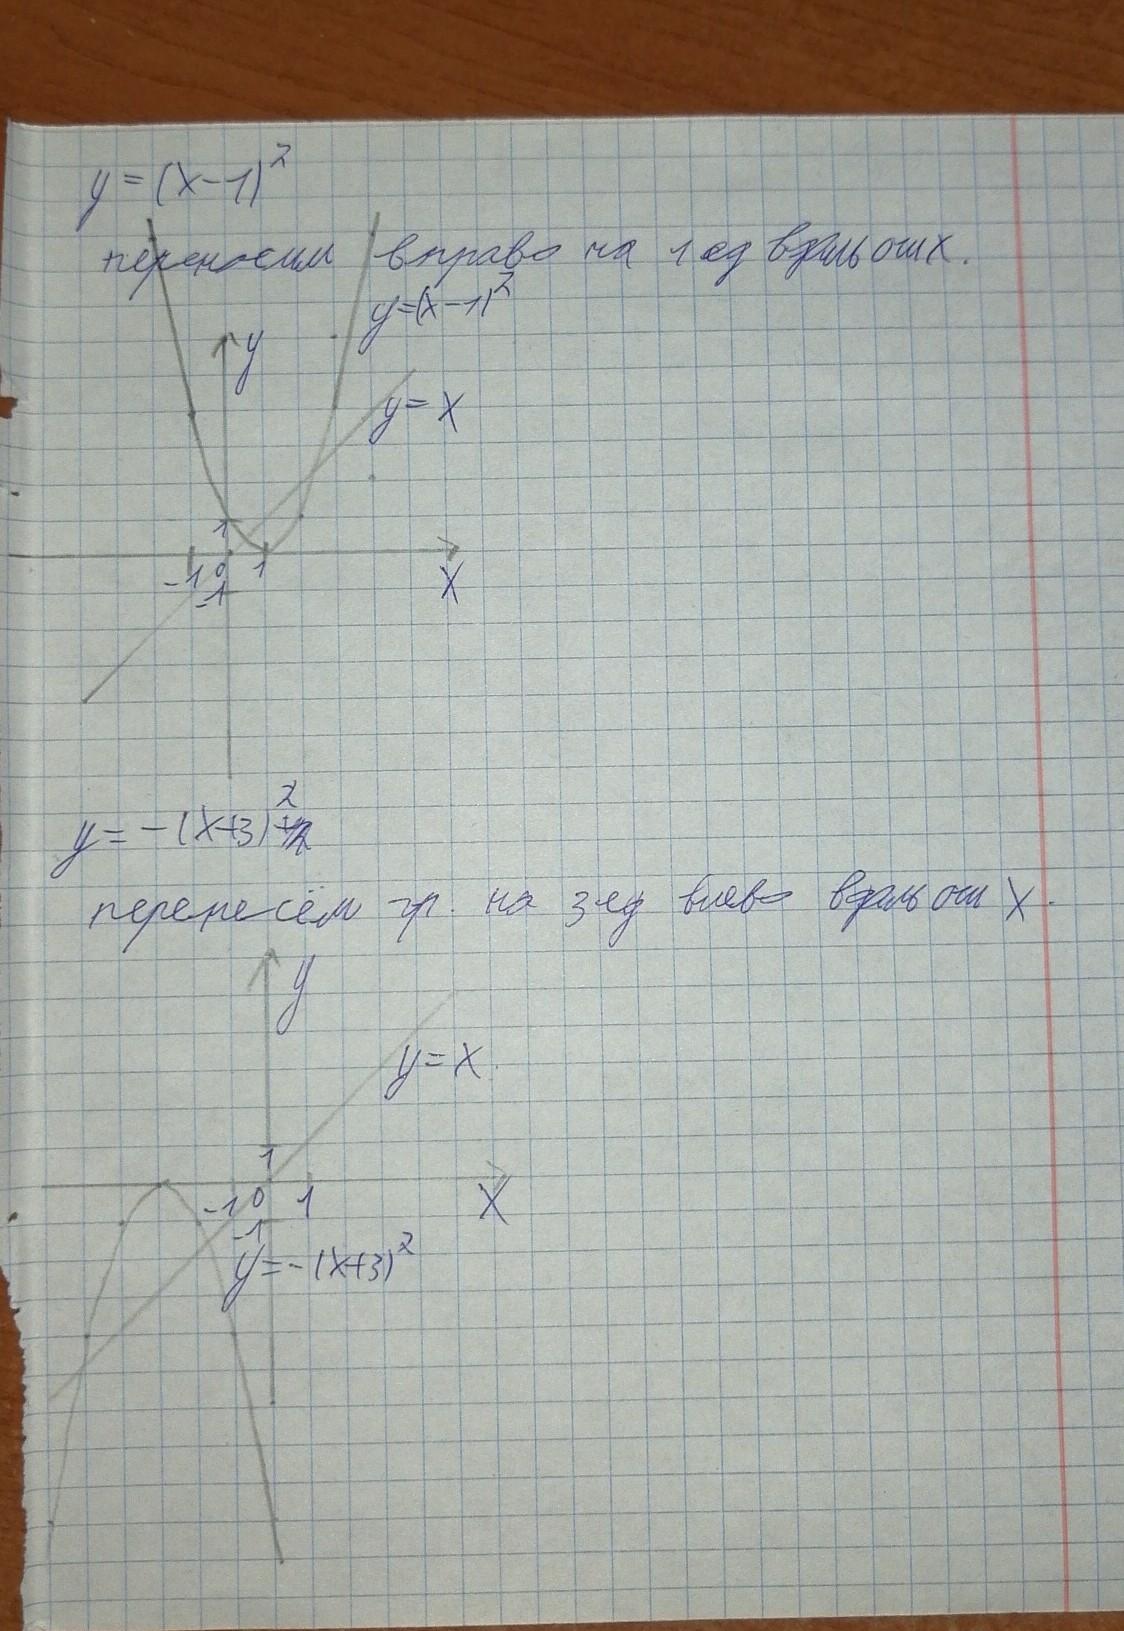 y = (x-1)²
переносим вправо на 1 ед вдоль оси x.
y=(x-1)²
y
y= x
1
-1 0 1
-1
x
y= -(x+3)²
перенесём гр. на 3 ед влево вдоль оси x.
y
y= x
1
-1 0 1
x
-1
y=-(x+3)²